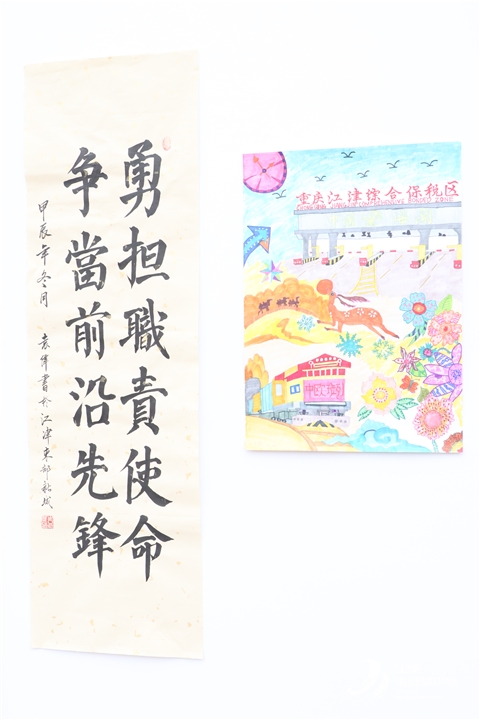 勇担職責使命
争當前沿先鋒
甲辰年冬月
袁偉書於江津東部新城
重庆江津综合保税区
CHONGQING JIANGJIN COMPREHENSIVE BONDED ZONE